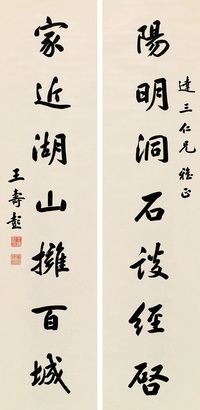 達三仁兄雅正
陽明洞石談經啓
家近湖山擁百城
王壽彭